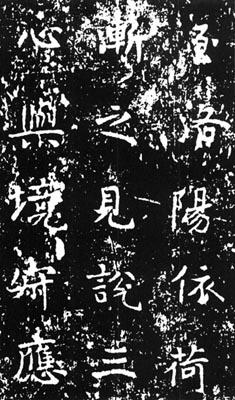 至洛陽依荷
漸之見說三
心與境寂應